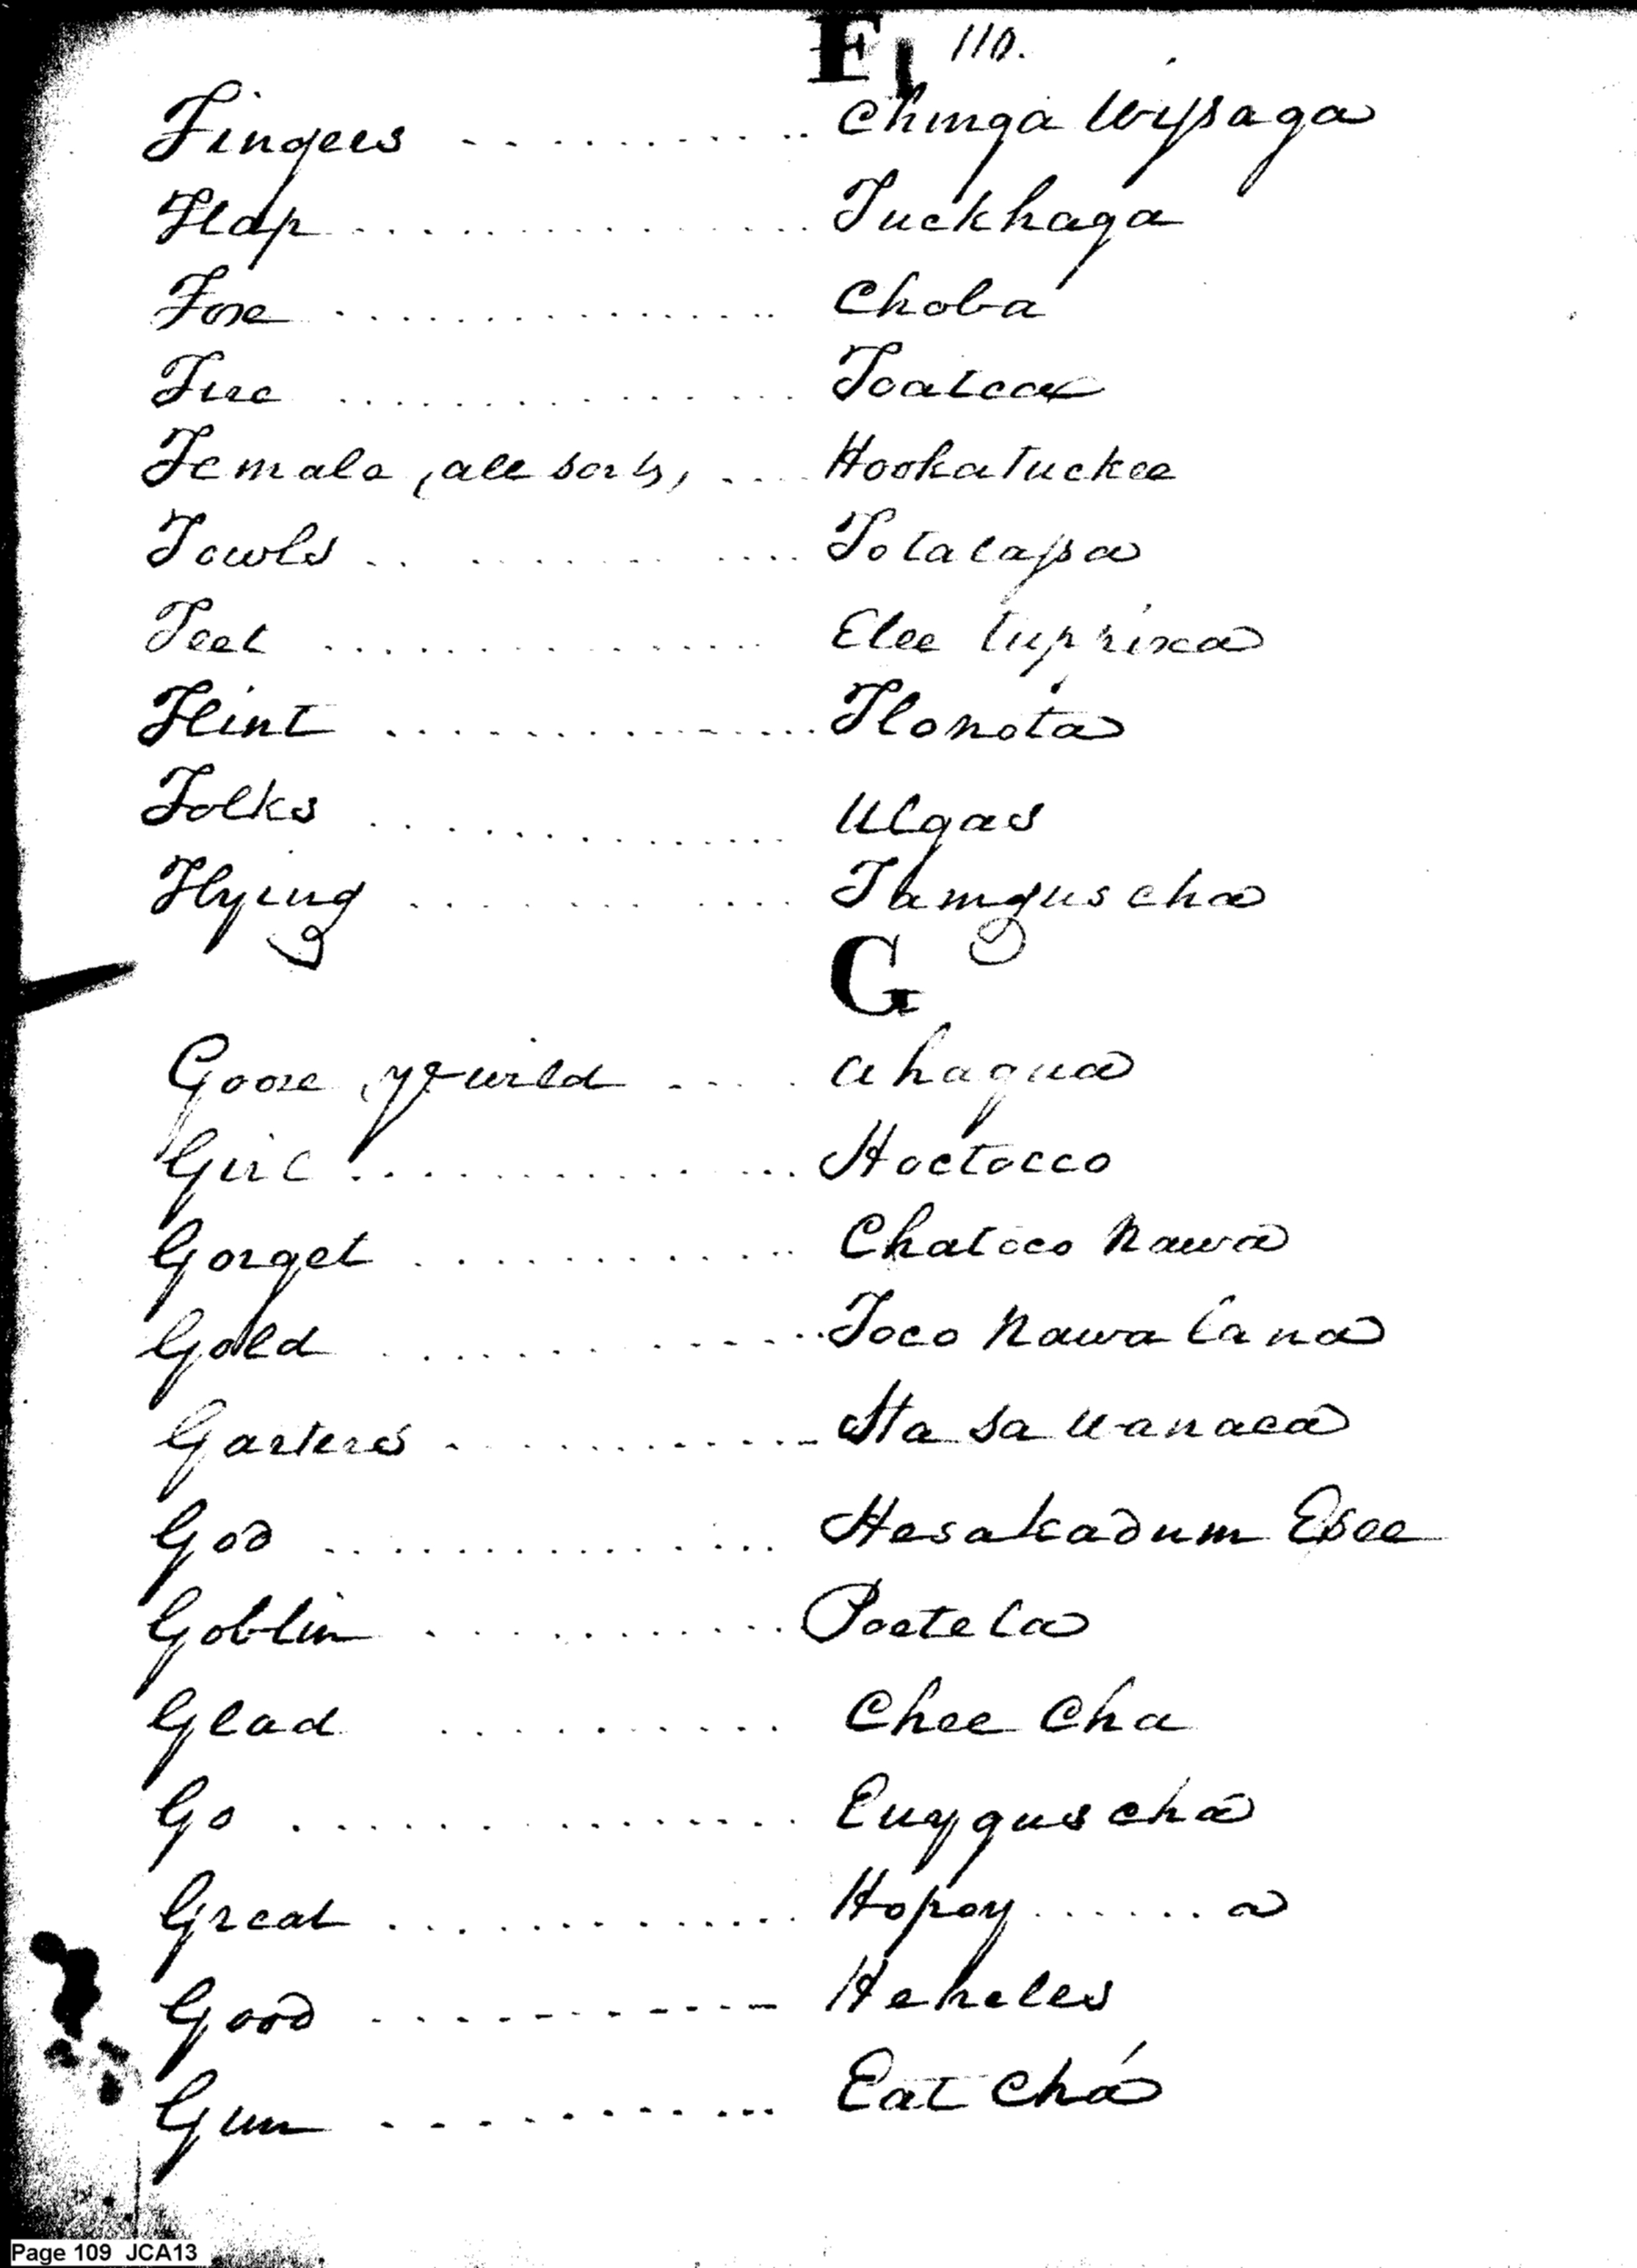 F 110.
Fingers .......... Chinga Wysaga
Flap .............. Tuckhaga
Foxe .............. Choba
Fire .............. Toatca
Female, all sorts, .... Hookatuckee
Fowls .......... Totalasa
Feet .............. Elee tuprixa
Flint .............. Tlonota
Folks .............. Ulgas
Flying .......... Tamguscha
G
Goose, ye wild .... Ahagua
Girl .............. Hoctocco
Gorget .......... Chatoco Nawa
Gold .......... Toco Nawa Lana
Garters .......... Ha sa Wanaca
God .............. Hesakadum Esee
Goblin .......... Poetela
Glad .......... Chee Cha
Go .............. Euyguscha
Great .......... Hopoy ...... a
Good .......... Heheles
Gun .......... Eat Chá
Page 109 JCA13